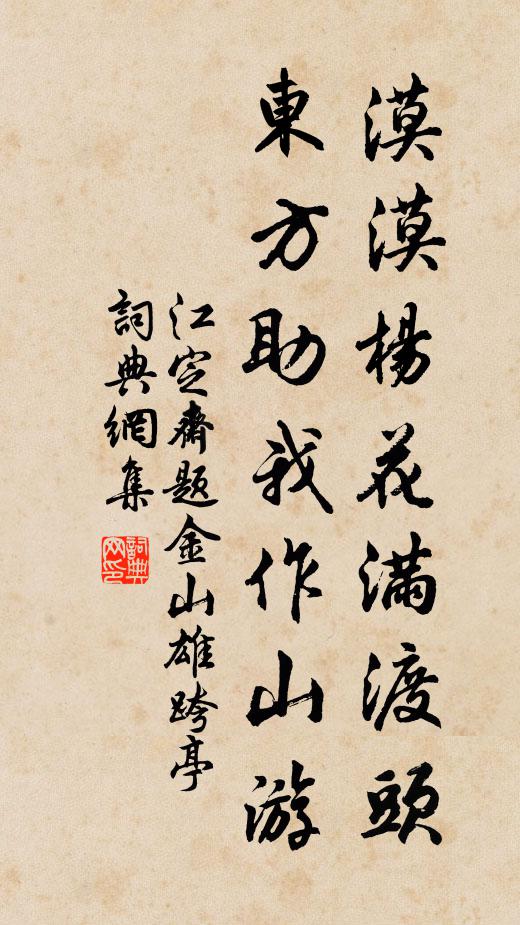 漠漠楊花滿渡頭
東方助我作山游
江定齋題金山雄跨亭
詞典網集
詞典
网印